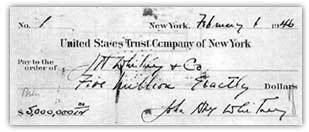 No. 1 New York. February 1 1946
United States Trust Company of New York
Pay to the
order of J H Whitney & Co.
Five million Exactly Dollars
$5,000,000.00 John Hay Whitney